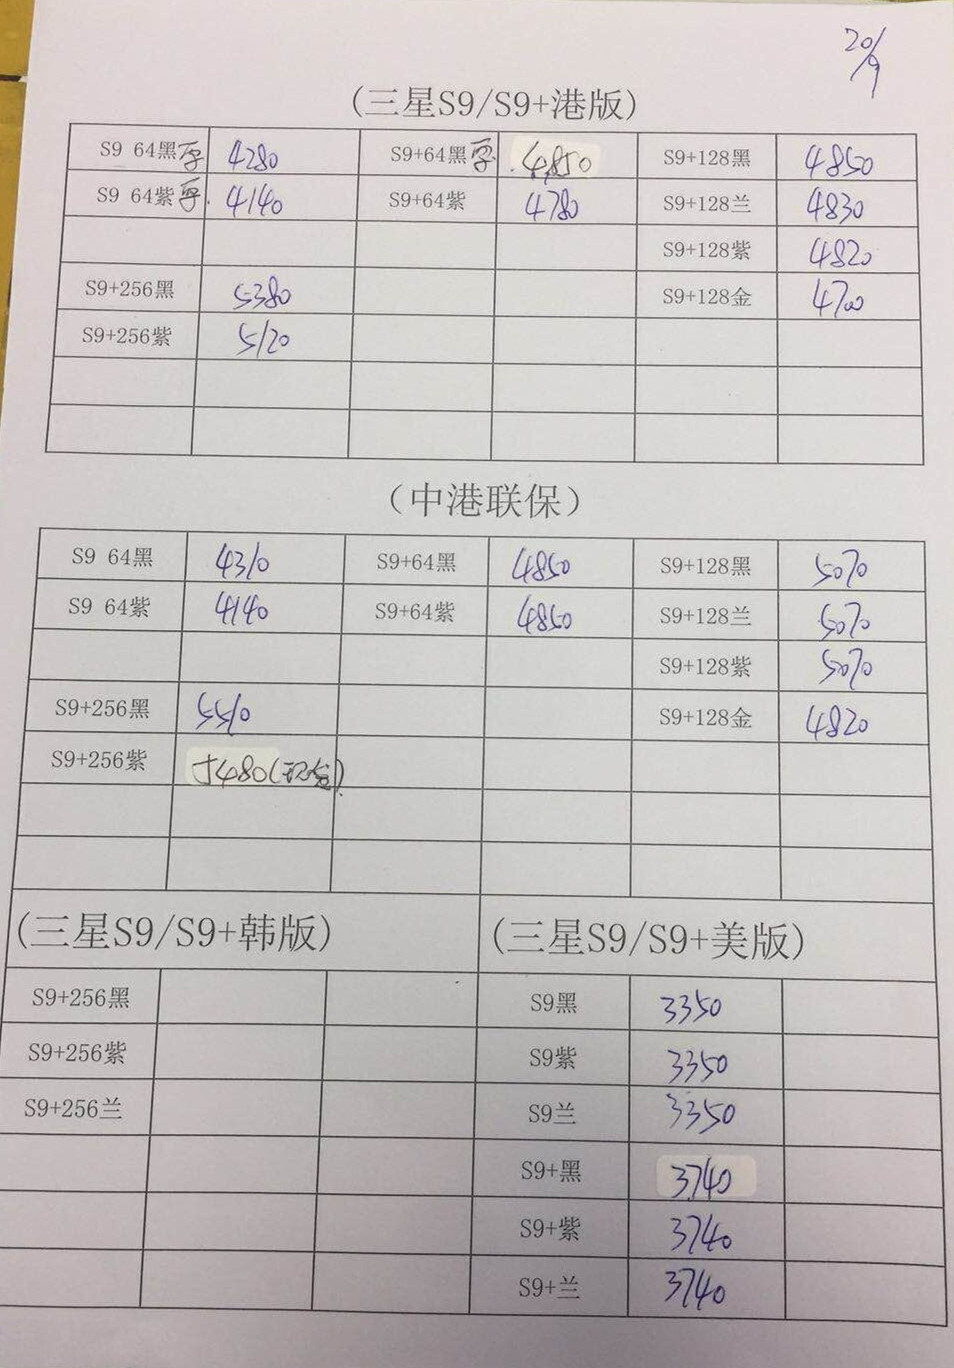 20/9
(三星S9/S9+港版)
S9 64黑 4280 S9+64黑 4850 S9+128黑 4850
S9 64紫 4140 S9+64紫 4780 S9+128兰 4830
S9+128紫 4820
S9+256黑 5380 S9+128金 4700
S9+256紫 5120
(中港联保)
S9 64黑 4310 S9+64黑 4850 S9+128黑 5070
S9 64紫 4140 S9+64紫 4850 S9+128兰 5070
S9+128紫 5070
S9+256黑 5510 S9+128金 4820
S9+256紫 5480
(三星S9/S9+韩版)
S9+256黑
S9+256紫
S9+256兰
(三星S9/S9+美版)
S9黑 3350
S9紫 3350
S9兰 3350
S9+黑 3740
S9+紫 3740
S9+兰 3740